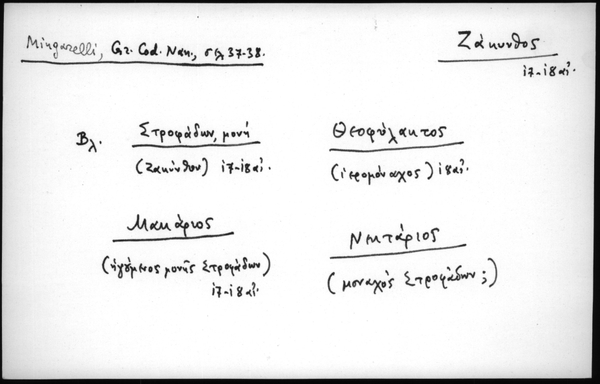 Mingarelli, Gr. Cod. Nan., σελ. 37-38.
Ζάκυνθος
17-18 αἰ.
Βλ. Στροφάδων, μονή
(Ζακύνθου) 17-18 αἰ.
Θεοφύλακτος
(ἱερομόναχος) 18 αἰ.
Μακάριος
(ἡγούμενος μονῆς Στροφάδων)
17-18 αἰ.
Νεκτάριος
(μοναχὸς Στροφάδων;)